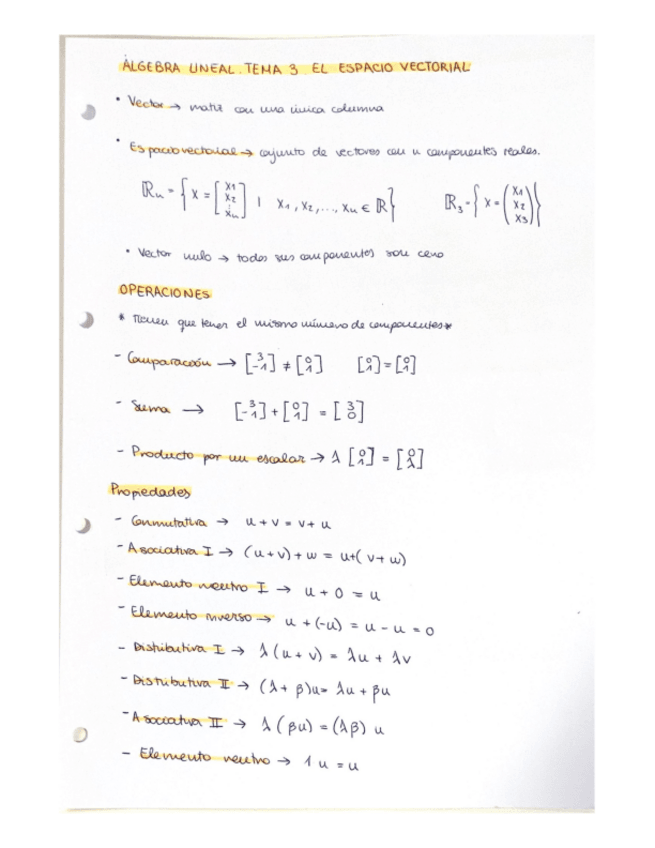 ÁLGEBRA LINEAL. TEMA 3 EL ESPACIO VECTORIAL
• Vector → matriz con una única columna
• Espacio vectorial → conjunto de vectores con n componentes reales.
ℝn = { x = [x1 x2 ⋮ xn] | x1, x2, ..., xn ∈ ℝ } ℝ3 = { x = (x1 x2 x3) }
• Vector nulo → todos sus componentes son cero
OPERACIONES
* Tienen que tener el mismo número de componentes *
- Comparación → [3 -1] ≠ [0 1] [0 1] = [0 1]
- Suma → [3 -1] + [0 1] = [3 0]
- Producto por un escalar → λ [0 1] = [0 λ]
Propiedades
- Conmutativa → u + v = v + u
- Asociativa I → (u + v) + w = u + (v + w)
- Elemento neutro I → u + 0 = u
- Elemento inverso → u + (-u) = u - u = 0
- Distributiva I → λ (u + v) = λu + λv
- Distributiva II → (λ + β)u = λu + βu
- Asociativa II → λ (βu) = (λβ) u
- Elemento neutro → 1 u = u